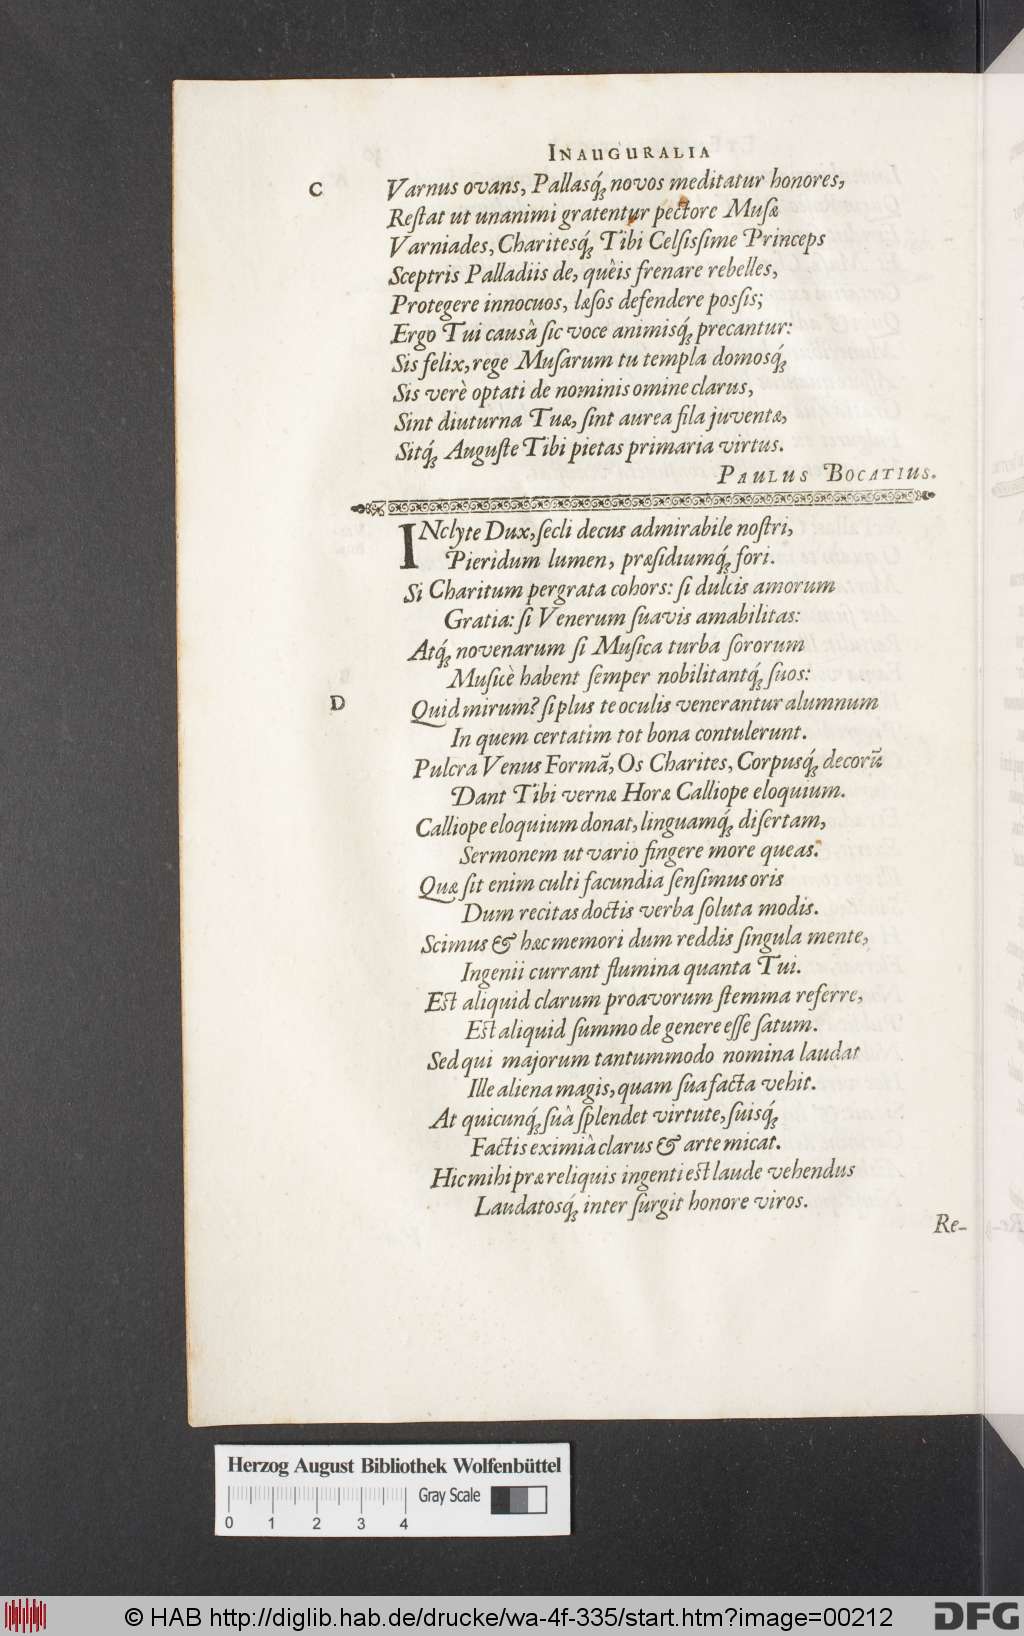 INAUGURALIA
C Varnus ovans, Pallasq́ꝫ novos meditatur honores,
Reſtat ut unanimi gratentur pectore Muſæ
Varniades, Charitesq́ꝫ Tibi Celſisſime Princeps
Sceptris Palladiis de, quêis frenare rebelles,
Protegere innocuos, læſos defendere posſis;
Ergo Tui causâ ſic voce animisq́ꝫ precantur:
Sis felix, rege Muſarum tu templa domosq́ꝫ
Sis verè optati de nominis omine clarus,
Sint diuturna Tuæ, ſint aurea fila juventæ,
Sitq́ꝫ Auguſte Tibi pietas primaria virtus.
PAULUS BOCATIUS.
INclyte Dux, ſecli decus admirabile noſtri,
Pieridum lumen, præſidiumq́ꝫ fori.
Si Charitum pergrata cohors: ſi dulcis amorum
Gratia: ſi Venerum ſuavis amabilitas:
Atq́ꝫ novenarum ſi Muſica turba ſororum
Muſicè habent ſemper nobilitantq́ꝫ ſuos:
D Quid mirum? ſi plus te oculis venerantur alumnum
In quem certatim tot bona contulerunt.
Pulcra Venus Formā, Os Charites, Corpusq́ꝫ decorū
Dant Tibi vernæ Horæ Calliope eloquium.
Calliope eloquium donat, linguamq́ꝫ diſertam,
Sermonem ut vario fingere more queas.
Quæ ſit enim culti facundia ſenſimus oris
Dum recitas doctis verba ſoluta modis.
Scimus & hæc memori dum reddis ſingula mente,
Ingenii currant flumina quanta Tui.
Eſt aliquid clarum proavorum ſtemma referre,
Eſt aliquid ſummo de genere eſſe ſatum.
Sed qui majorum tantummodo nomina laudat
Ille aliena magis, quam ſua facta vehit.
At quicunq́ꝫ ſuà ſplendet virtute, ſuisq́ꝫ
Factis eximiâ clarus & arte micat.
Hic mihi præ reliquis ingenti eſt laude vehendus
Laudatosq́ꝫ inter ſurgit honore viros.
Re-
Herzog August Bibliothek Wolfenbüttel
Gray Scale
0 1 2 3 4
© HAB http://diglib.hab.de/drucke/wa-4f-335/start.htm?image=00212
DFG